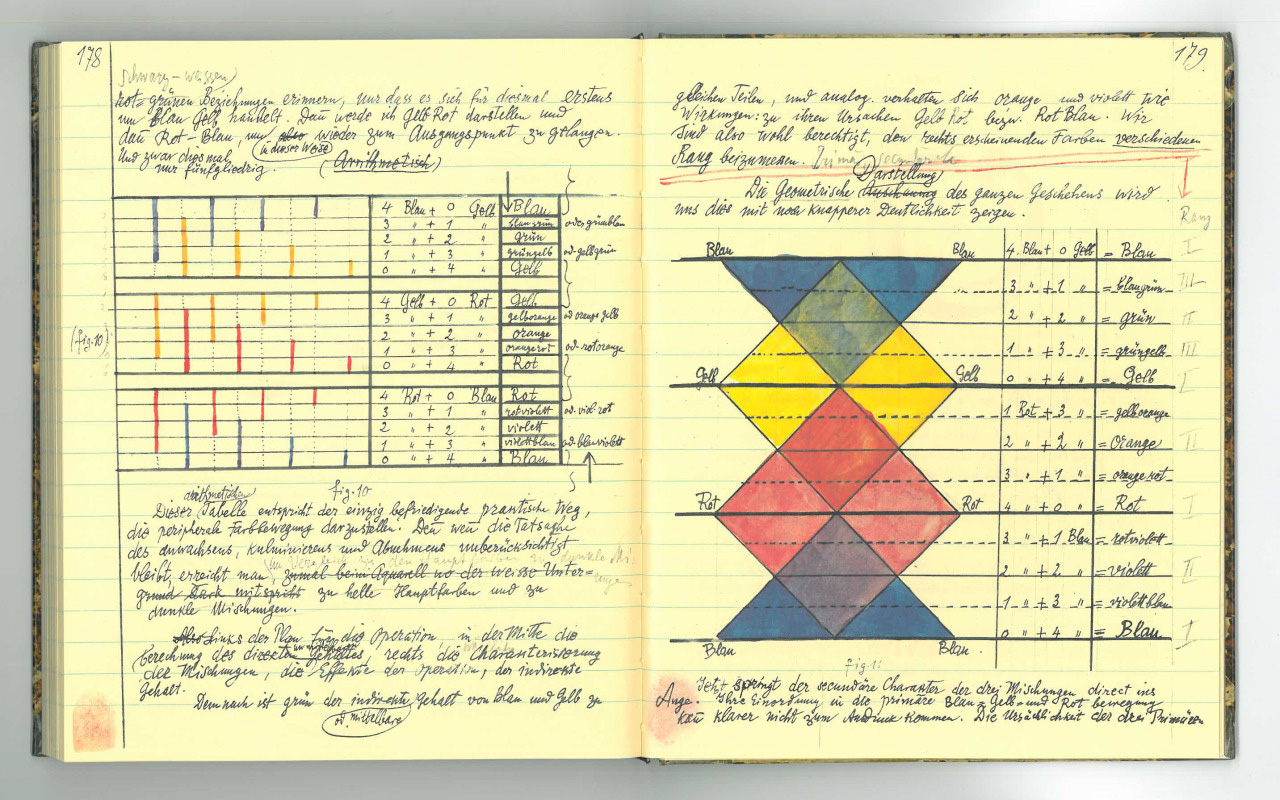 178
Schwarz-weissen)
rot=grünen Beziehungen erinnern, nur dass es sich für diesmal erstens
um Blau Gelb handelt. Dan̄ werde ich Gelb Rot darstellen und
dan̄ Rot-Blau, um also wieder zum Ausgangspunkt zu gelangen.
Und zwar diesmal (in dieser Weise)
nur fünfgliedrig. (Arrithmetisch)
4 Blau + 0 Gelb Blau
3 " + 1 " blaugrün oder grünblau
2 + 2 " grün
1 " + 3 " grüngelb od. gelbgrün
0 " + 4 " Gelb
4 Gelb + 0 Rot Gelb
3 " + 1 " gelborange od orange gelb
2 " + 2 " orange
1 " + 3 " orangerot od. rotorange
0 " + 4 " Rot
(fig. 10)
4 Rot + 0 Blau Rot
3 " + 1 " rotviolett od. viol. rot
2 " + 2 " violett
1 " + 3 " violettblau od. blauviolett
0 " + 4 " Blau
fig. 10
arithmetische
Dieser Tabelle entspricht der einzig befriedigende praktische Weg,
die peripherale Farbbewegung darzustellen. Den̄ wen̄ die Tatsache
des Anwachsens, kulminierens und Abnehmens unberücksichtigt
bleibt, erreicht man zumal beim Aquarell wo der weisse Unter=
grund stark mitspricht zu helle Hauptfarben und zu
dunkle Mischungen.
Also Links der Plan für die Operation, in der Mitte die
berechnung des direkten Gehaltes, rechts die Charakterisierung
der Mischungen, die Effekte der Operation, der indirekte
Gehalt.
Demnach ist grün der indirekte Gehalt von blau und Gelb zu
(od. mittelbare)
179.
gleichen Teilen, und analog verhalten sich orange und violett wie
Wirkungen zu ihren Ursachen Gelb Rot bezw. Rot Blau. Wir
sind also wohl berechtigt, den rechts erscheinenden Farben verschiedenen
Rang beizumessen.
Darstellung
Die Geometrische des ganzen Geschehens wird
uns dies mit noch knapperer Deutlichkeit zeigen.
Rang
Blau Blau 4 Blau + 0 Gelb = Blau I
3 " + 1 " = blaugrün III
2 " + 2 " = grün II
1 " + 3 " = grüngelb III
Gelb Gelb 0 " + 4 " = Gelb I
1 Rot + 3 " = gelborange
2 " + 2 " = Orange II
3 " + 1 " = orangerot
Rot Rot 4 " + 0 " = Rot I
3 " + 1 Blau = rotviolett
2 " + 2 " = violett II
1 " + 3 " = violettblau
0 " + 4 " = Blau I
Blau Blau
fig. 1:
Jetzt springt der secundäre Charakter der drei Mischungen direct ins
Auge. Ihre Einordnung in die primäre Blau=Gelb=und Rot bewegung
kan̄ klarer nicht zum Ausdruck kommen. Die Ursächlichkeit der drei Primären